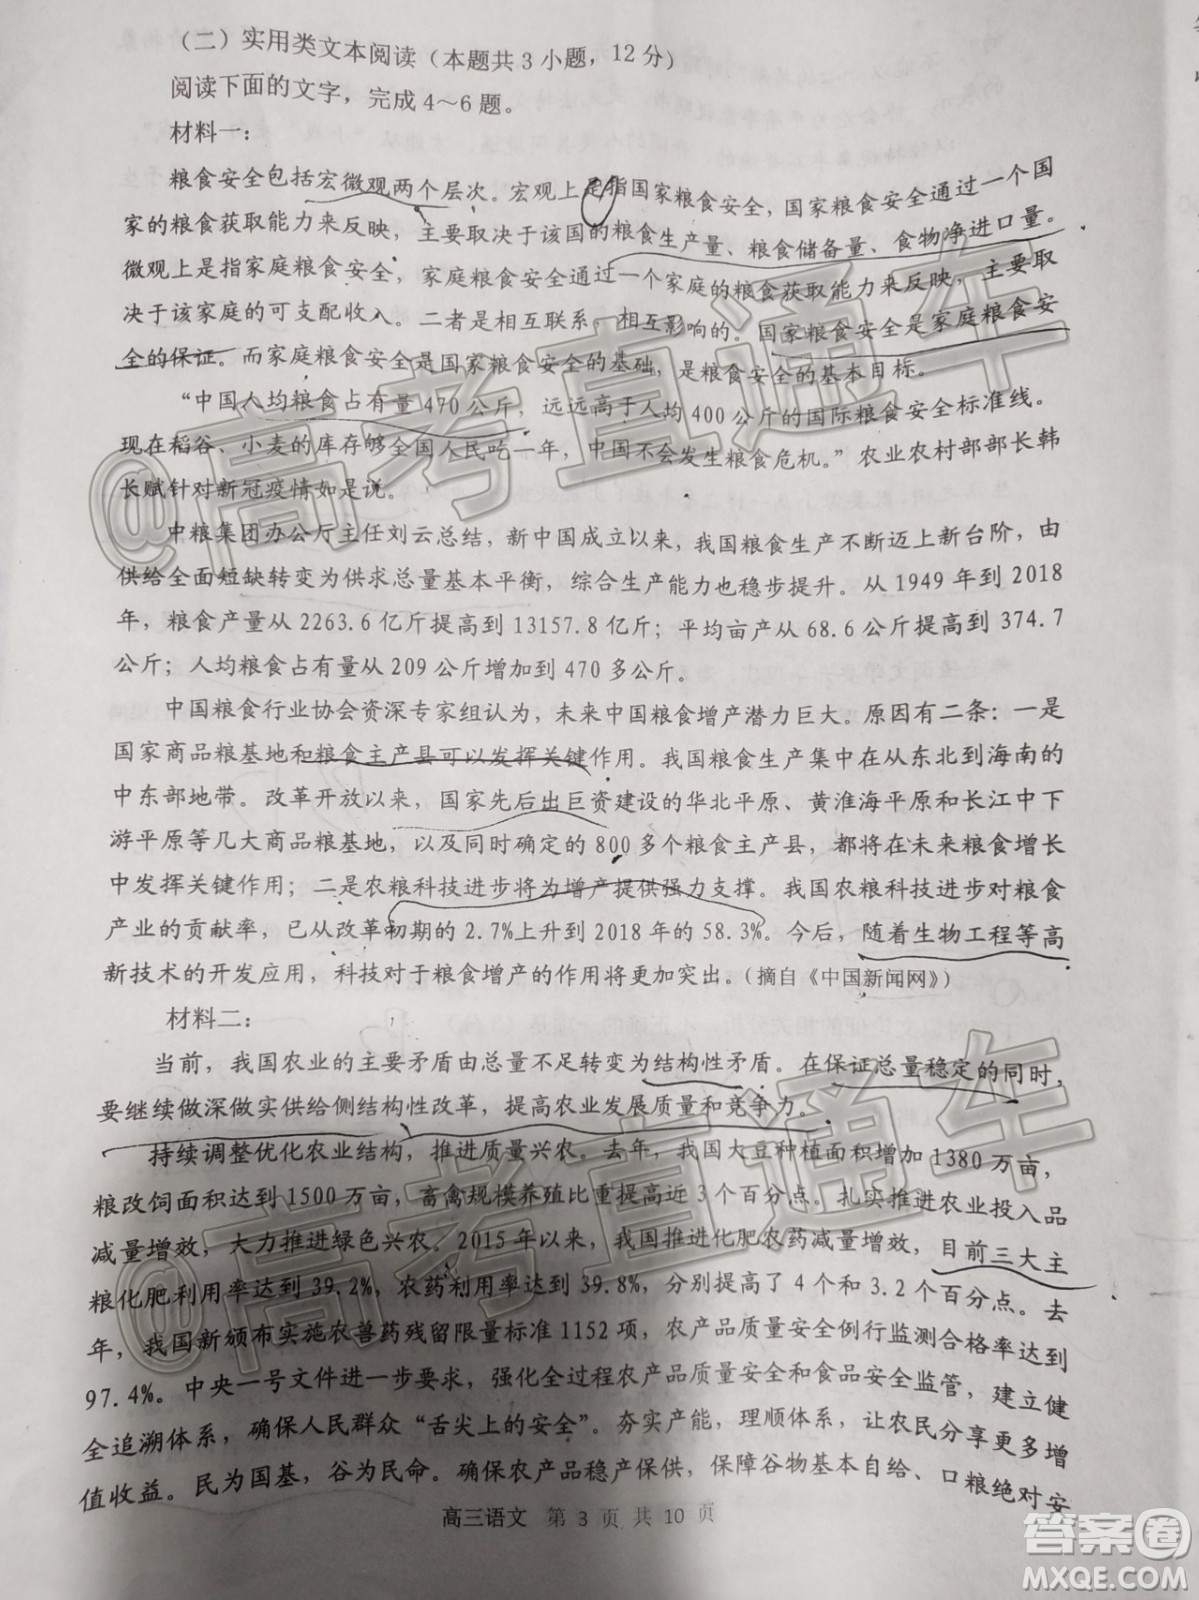 （二）实用类文本阅读（本题共3小题，12分）
阅读下面的文字，完成4～6题。
材料一：
粮食安全包括宏微观两个层次。宏观上是指国家粮食安全，国家粮食安全通过一个国
家的粮食获取能力来反映，主要取决于该国的粮食生产量、粮食储备量、食物净进口量。
微观上是指家庭粮食安全，家庭粮食安全通过一个家庭的粮食获取能力来反映，主要取
决于该家庭的可支配收入。二者是相互联系，相互影响的。国家粮食安全是家庭粮食安
全的保证。而家庭粮食安全是国家粮食安全的基础，是粮食安全的基本目标。
“中国人均粮食占有量470公斤，远远高于人均400公斤的国际粮食安全标准线。
现在稻谷、小麦的库存够全国人民吃一年，中国不会发生粮食危机。”农业农村部部长韩
长赋针对新冠疫情如是说。
中粮集团办公厅主任刘云总结，新中国成立以来，我国粮食生产不断迈上新台阶，由
供给全面短缺转变为供求总量基本平衡，综合生产能力也稳步提升。从1949年到2018
年，粮食产量从2263.6亿斤提高到13157.8亿斤；平均亩产从68.6公斤提高到374.7
公斤；人均粮食占有量从209公斤增加到470多公斤。
中国粮食行业协会资深专家组认为，未来中国粮食增产潜力巨大。原因有二条：一是
国家商品粮基地和粮食主产县可以发挥关键作用。我国粮食生产集中在从东北到海南的
中东部地带。改革开放以来，国家先后出巨资建设的华北平原、黄淮海平原和长江中下
游平原等几大商品粮基地，以及同时确定的800多个粮食主产县，都将在未来粮食增长
中发挥关键作用；二是农粮科技进步将为增产提供强力支撑。我国农粮科技进步对粮食
产业的贡献率，已从改革初期的2.7%上升到2018年的58.3%。今后，随着生物工程等高
新技术的开发应用，科技对于粮食增产的作用将更加突出。（摘自《中国新闻网》）
材料二：
当前，我国农业的主要矛盾由总量不足转变为结构性矛盾。在保证总量稳定的同时，
要继续做深做实供给侧结构性改革，提高农业发展质量和竞争力。
持续调整优化农业结构，推进质量兴农。去年，我国大豆种植面积增加1380万亩，
粮改饲面积达到1500万亩，畜禽规模养殖比重提高近3个百分点。扎实推进农业投入品
减量增效，大力推进绿色兴农。2015年以来，我国推进化肥农药减量增效，目前三大主
粮化肥利用率达到39.2%，农药利用率达到39.8%，分别提高了4个和3.2个百分点。去
年，我国新颁布实施农兽药残留限量标准1152项，农产品质量安全例行监测合格率达到
97.4%。中央一号文件进一步要求，强化全过程农产品质量安全和食品安全监管，建立健
全追溯体系，确保人民群众“舌尖上的安全”。夯实产能，理顺体系，让农民分享更多增
值收益。民为国基，谷为民命。确保农产品稳产保供，保障谷物基本自给、口粮绝对安
高三语文 第3页共10页
@高考直通车
@高考直通车
答案圈
MXQE.COM